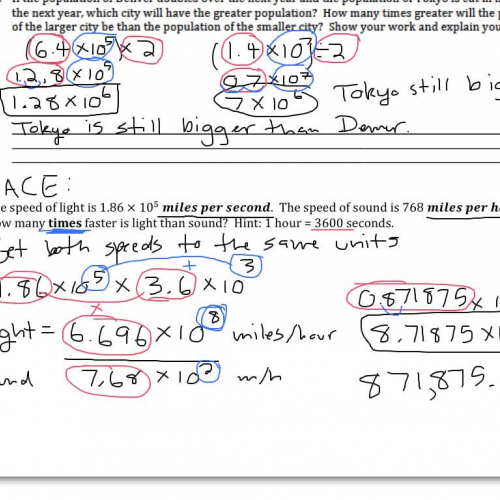 the next year, which city will have the greater population? How many times greater will the p
of the larger city be than the population of the smaller city? Show your work and explain you
(6.4 × 10⁵) × 2 (1.4 × 10⁷) ÷ 2
12.8 × 10⁵ 0.7 × 10⁷
1.28 × 10⁶ 7 × 10⁶ Tokyo still big
Tokyo is still bigger than Denver.
ACE:
e speed of light is 1.86 × 10⁵ miles per second. The speed of sound is 768 miles per h
ow many times faster is light than sound? Hint: 1 hour = 3600 seconds.
et both speeds to the same units
1.86 × 10⁵ × 3.6 × 10³
+
×
0.871875 × 1
ght = 6.696 × 10⁸ miles/hour 8.71875 × 1
und 7.68 × 10² m/h 871,875.